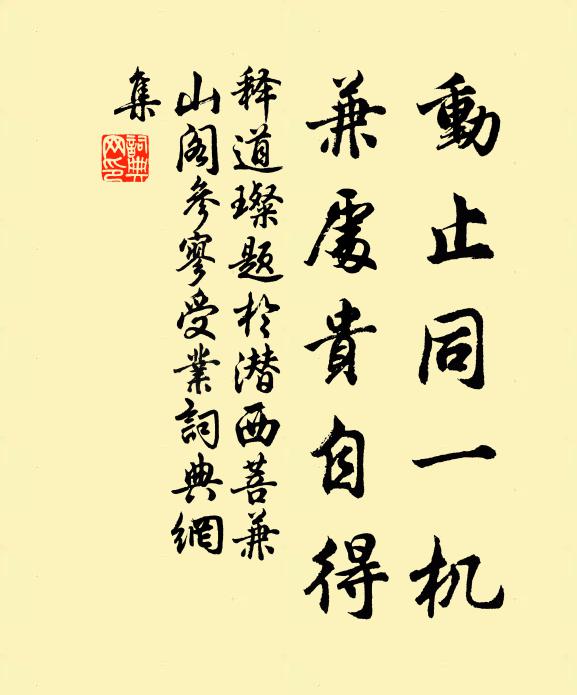 動止同一机
兼處貴自得
释道璨題於潜西菩兼
山阁參寥受業詞典網
集
詞典
网印